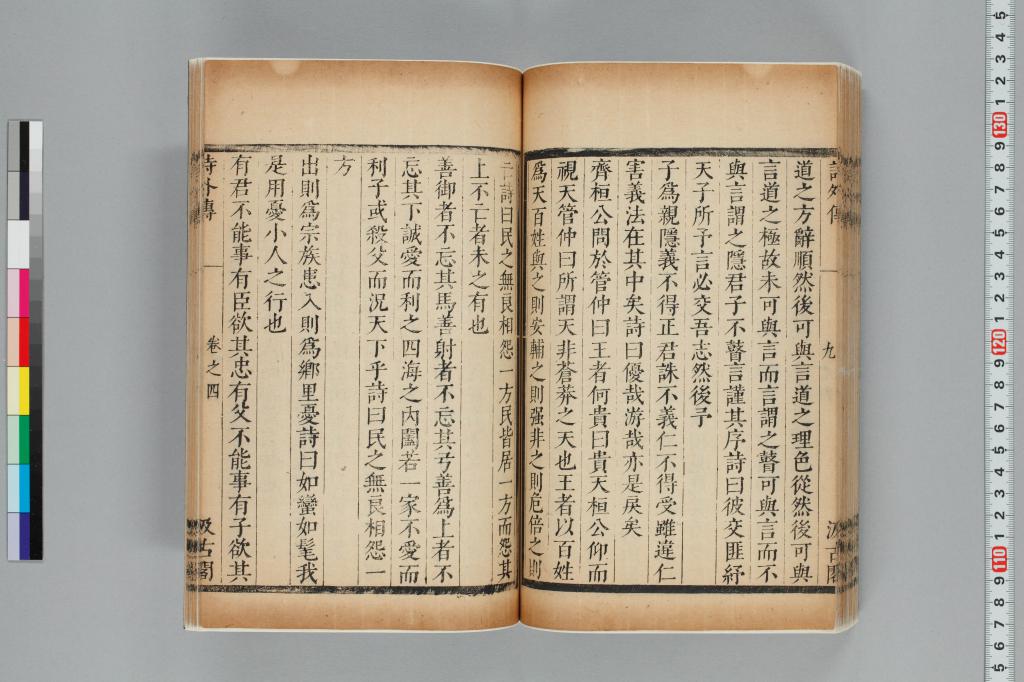 詩外傳 九 汲古閣
道之方辭順然後可與言道之理色從然後可與
言道之極故未可與言而言謂之瞽可與言而不
與言謂之隱君子不瞽言謹其序詩曰彼交匪紓
天子所予言必交吾志然後予
子爲親隱義不得正君誅不義仁不得受雖違仁
害義法在其中矣詩曰優哉游哉亦是戾矣
齊桓公問於管仲曰王者何貴曰貴天桓公仰而
視天管仲曰所謂天非蒼莽之天也王者以百姓
爲天百姓與之則安輔之則强非之則危倍之則
亡詩曰民之無良相怨一方民皆居一方而怨其
上不亡者未之有也
善御者不忘其馬善射者不忘其弓善爲上者不
忘其下誠愛而利之四海之內闔若一家不愛而
利子或殺父而況天下乎詩曰民之無良相怨一
方
出則爲宗族患入則爲鄉里憂詩曰如蠻如髦我
是用憂小人之行也
有君不能事有臣欲其忠有父不能事有子欲其
詩外傳 卷之四 汲古閣
5 4 3 2 1 130 9 8 7 6 5 4 3 2 1 120 9 8 7 6 5 4 3 2 1 110 9 8 7 6 5